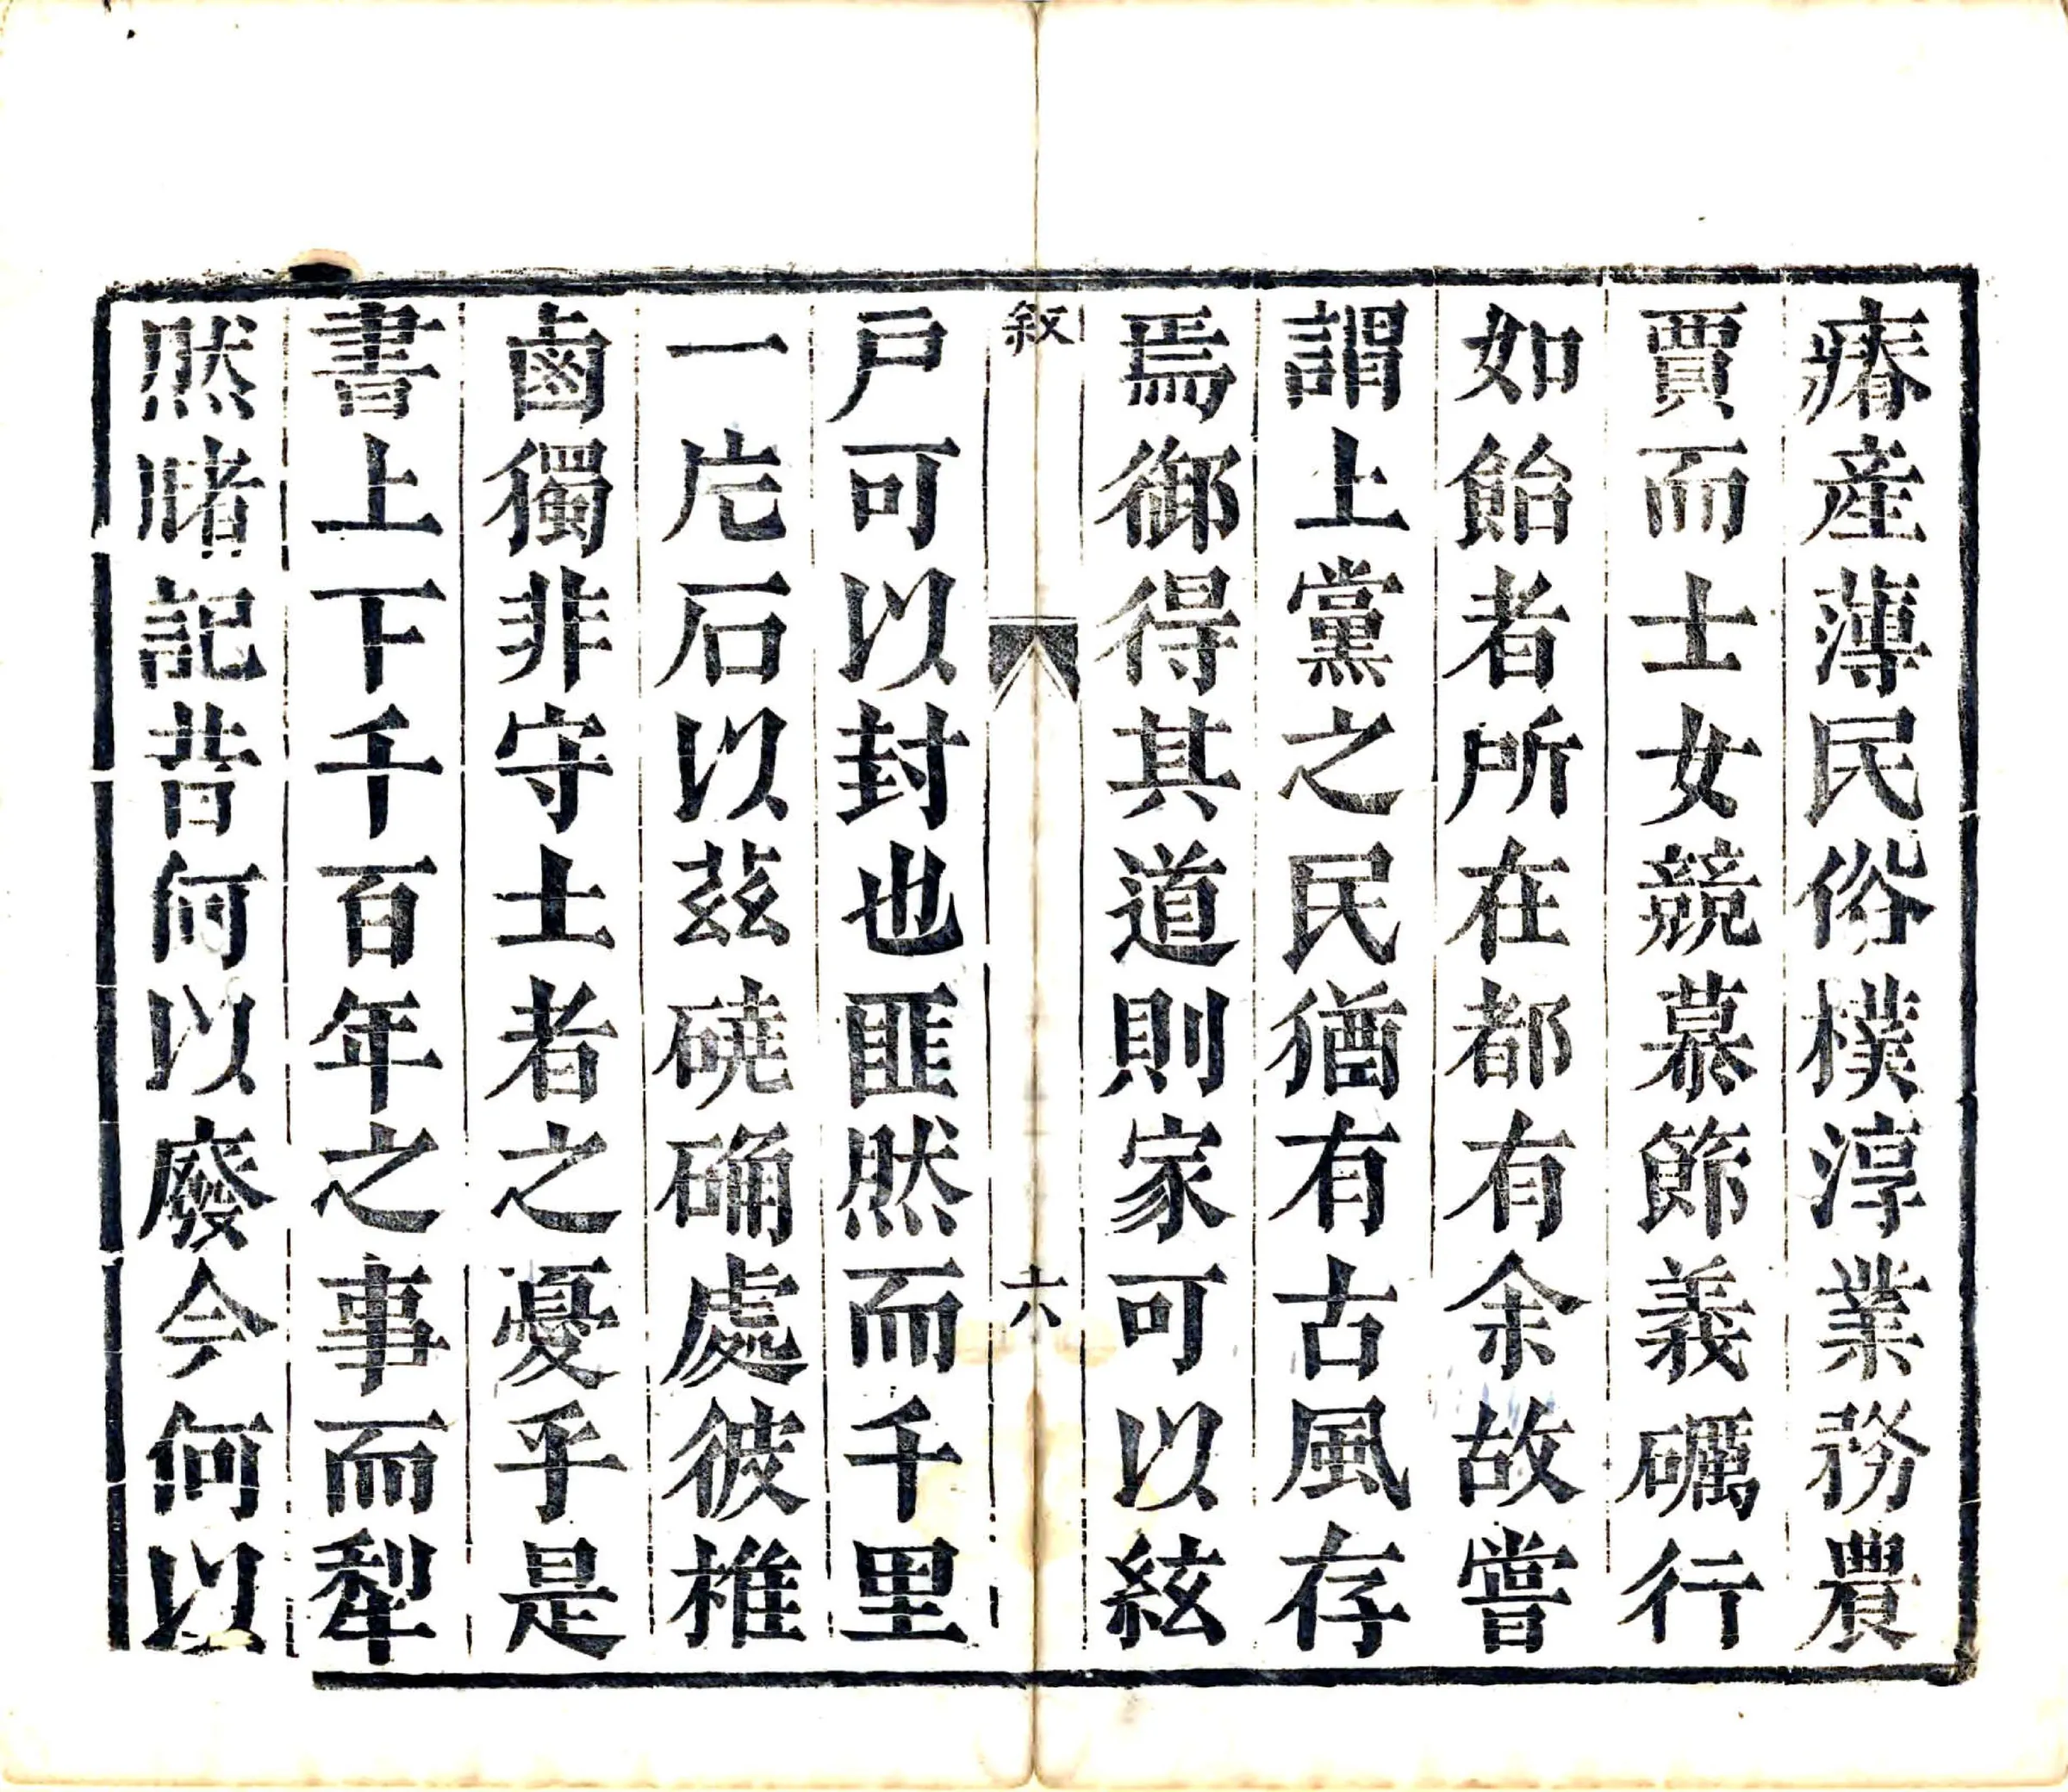 瘠產薄民俗樸淳業務農
賈而士女競慕節義礪行
如飴者所在都有余故嘗
謂上黨之民猶有古風存
焉御得其道則家可以絃
敘
六
戸可以封也匪然而千里
一庀石以兹磽确處彼椎
鹵獨非守土者之憂乎是
書上下千百年之事而犁
然睹記昔何以廢今何以